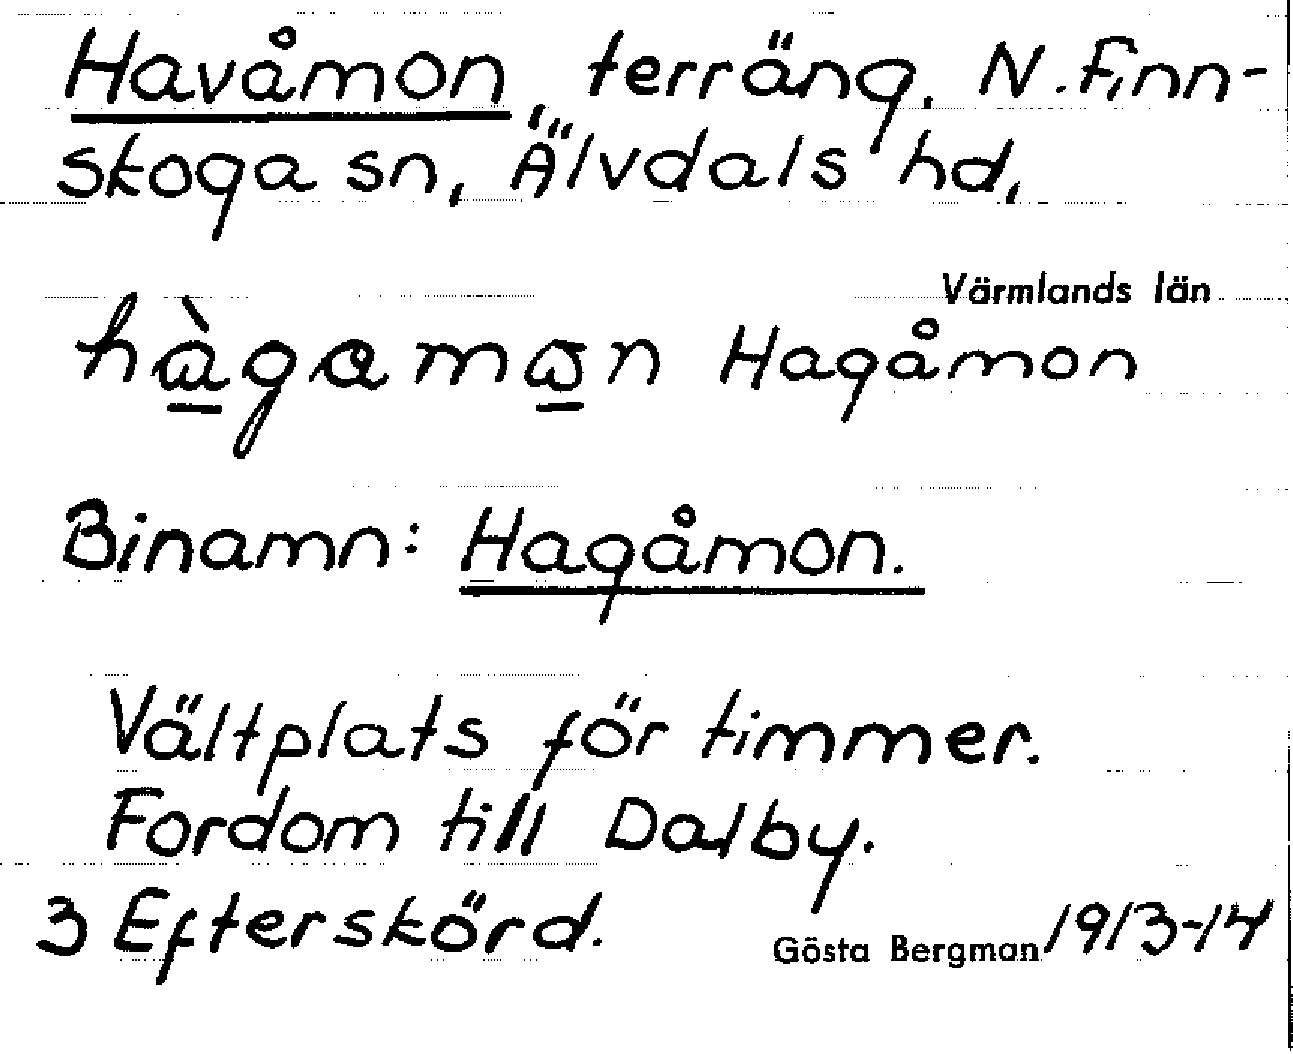 Havåmon, terräng, N. Finn-
skoga sn, Älvdals hd,
Värmlands län
hàgamon Hagåmon
Binamn: Hagåmon.
Vältplats för timmer.
Fordom till Dalby.
3 Efterskörd.
Gösta Bergman 1913-14